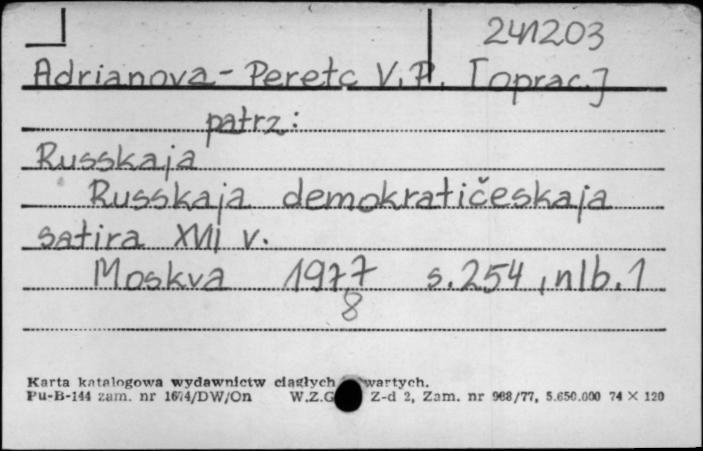 241203
Adrianova-Peretc V.P. [oprac.]
patrz:
Russkaja
Russkaja demokratičeskaja
satira XVII v.
Moskva 1977 s.254, nlb.1
8
Karta katalogowa wydawnictw ciągłych wartych.
Pu-B-144 zam. nr 1674/DW/On W.Z.G Z-d 2, Zam. nr 988/77, 5.650.000 74 × 120